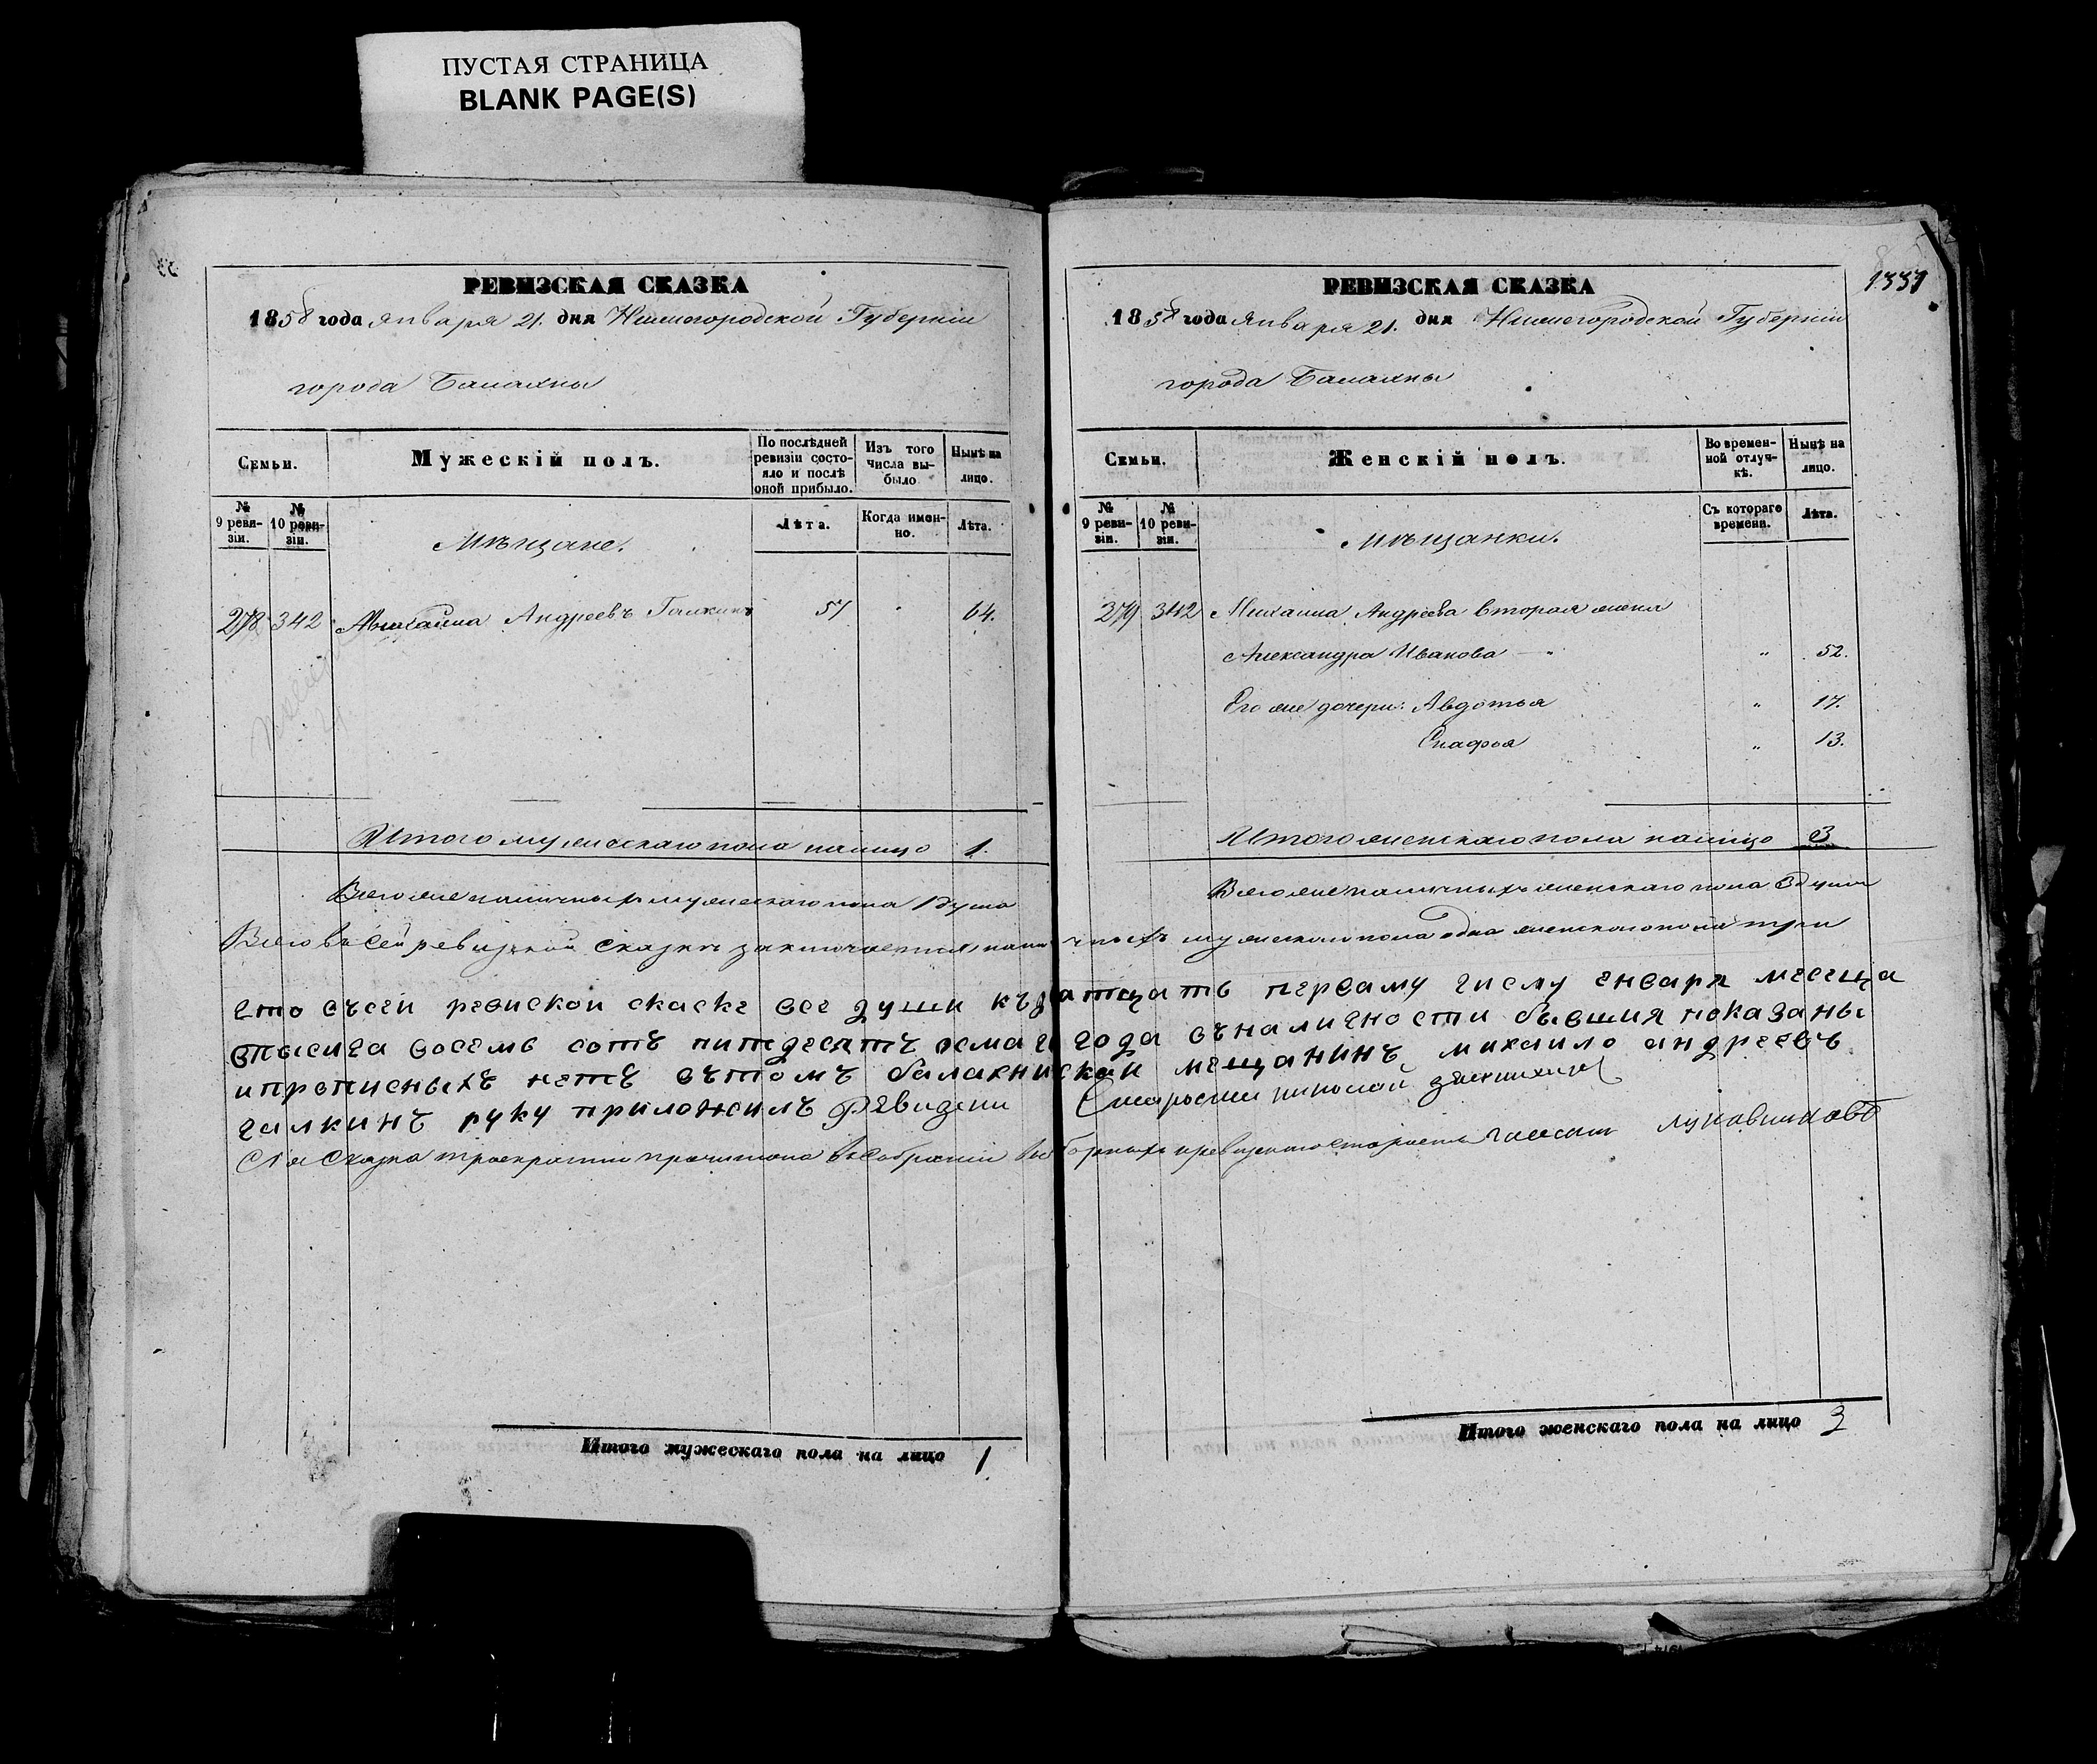 ПУСТАЯ СТРАНИЦА
BLANK PAGE(S)
РЕВИЗСКАЯ СКАЗКА
1858 года Января 21. дня Нижегородской Губерніи
города Балахны
Семьи.
Мужескій полъ.
По послѣдней ревизіи состояло и послѣ оной прибыло.
Изъ того числа выбыло
Нынѣ на лицо.
№ 9 ревизіи.
№ 10 ревизіи.
Мѣщане.
Лѣта.
Когда именно.
Лѣта.
278 342 Михаила Андреевъ Галкинъ 57 " 64.
Итого мужескаго пола налицо 1.
Всего же наличныхъ мужескаго пола 1 душа
Итого мужескаго пола на лицо 1
1331
РЕВИЗСКАЯ СКАЗКА
1858 года Января 21. дня Нижегородской Губерніи
города Балахны
Семьи.
Женскій полъ.
Во временной отлучкѣ.
Нынѣ на лицо.
№ 9 ревизіи.
№ 10 ревизіи.
Мѣщанки.
Съ котораго времени.
Лѣта.
379 342 Михаила Андреева вторая жена
Александра Иванова " 52.
Его же дочери: Авдотья " 17.
Епафья " 13.
Итого женскаго пола налицо 3
Всего же наличныхъ женскаго пола 3 души
Всего въ сей ревизской сказкѣ заключается наличныхъ мужескаго пола одна женскаго пола три
что въсеи ревиской скаске все души къдватцать перваму числу енваря месеца
втысича восемь сотъ питдесятъ осмаго года въналичности бывшия показаны
ипрописныхъ нетъ вътомъ балахниской мещанинъ михаило андреевъ
галкинъ руку приложилъ Ревизски Староста николай
Сія Сказка троекратно прочитана въ собраніи выборныхъ
Итого женскаго пола на лицо 3